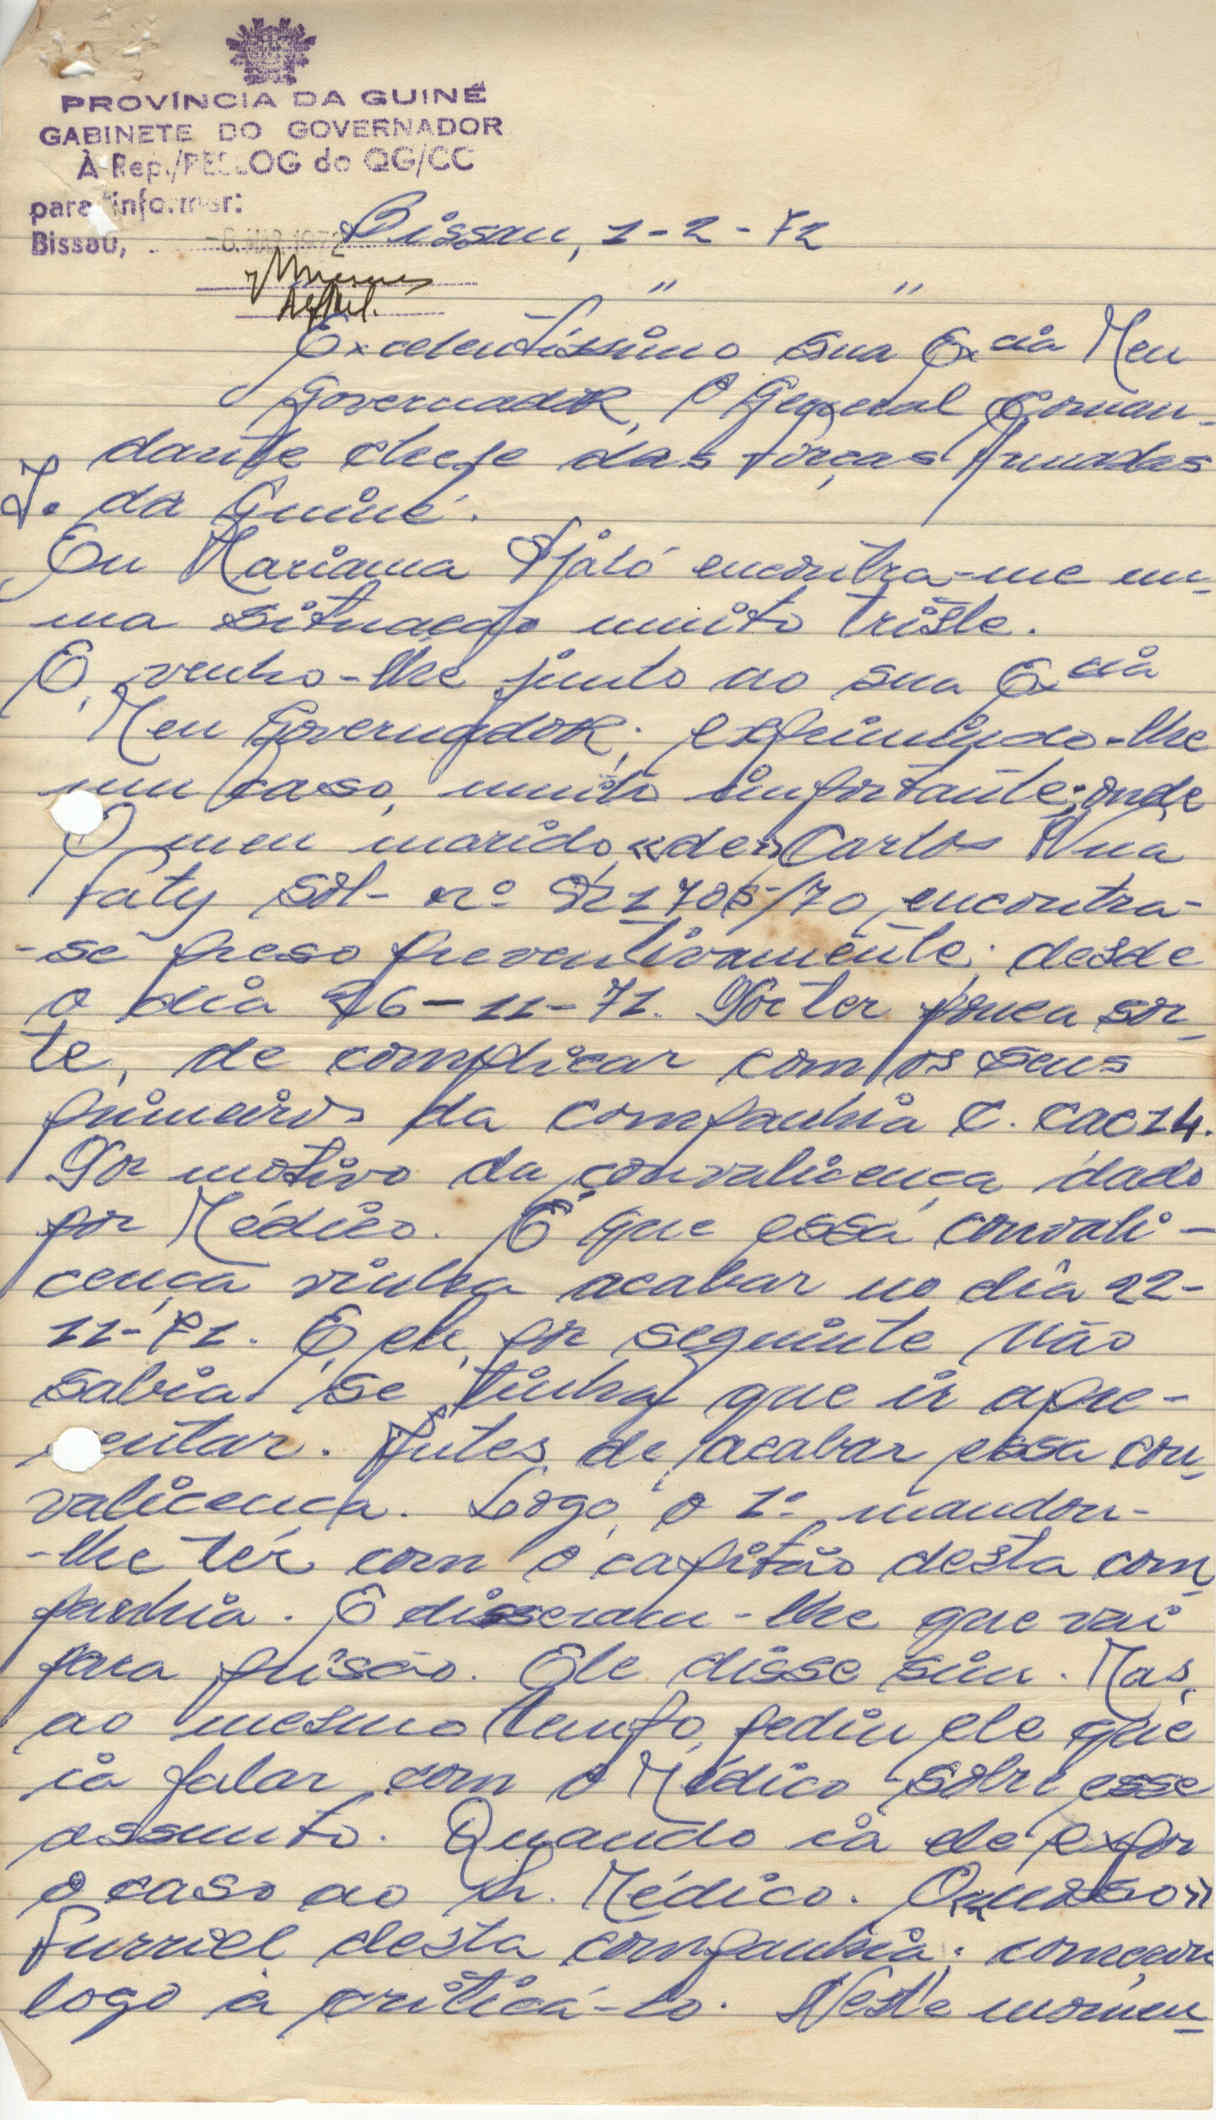 PROVÍNCIA DA GUINÉ
GABINETE DO GOVERNADOR
À Rep./PESLOG do QG/CC
para informar:
Bissau, -6. MAR 1972
Bissau, 1-2-72
" "
Excelentíssimo sua Excia Meu
Governador, O General Coman-
dante chefe das forças Armadas
da Guiné.
Eu Mariama Djáló encontra-me nu-
ma situação muito triste.
E, venho-lhe junto ao sua Excia
Meu Governador; exprimindo-lhe
um caso, muito importante; onde
O meu marido, «de» Carlos Nua
Faty sol- nº 821705/70, encontra-
-se preso preventivamente; desde
o dia 26-11-71. Por ter pouca sor-
te, de complicar com os seus
primeiros da companhia C. CAC14.
Por motivo da convalicença dado
por Médico. E que essa convali-
cença vinha acabar no dia 22-
11-71. E ele, por seguinte não
sabia se tinha que ir apre-
sentar. Antes de acabar essa con-
valicença. Logo, o 1º mandou-
-lhe ter com o capitão desta com-
panhia. E disseram-lhe que vai
para prisão. Ele disse sim. Mas,
ao mesmo tempo, pediu ele que
ia falar com o Médico sobre esse
assunto. Quando ia ele expor
o caso ao Sr. Médico. O
Furriel desta companhia; começou
logo à criticá-lo. Neste momen-